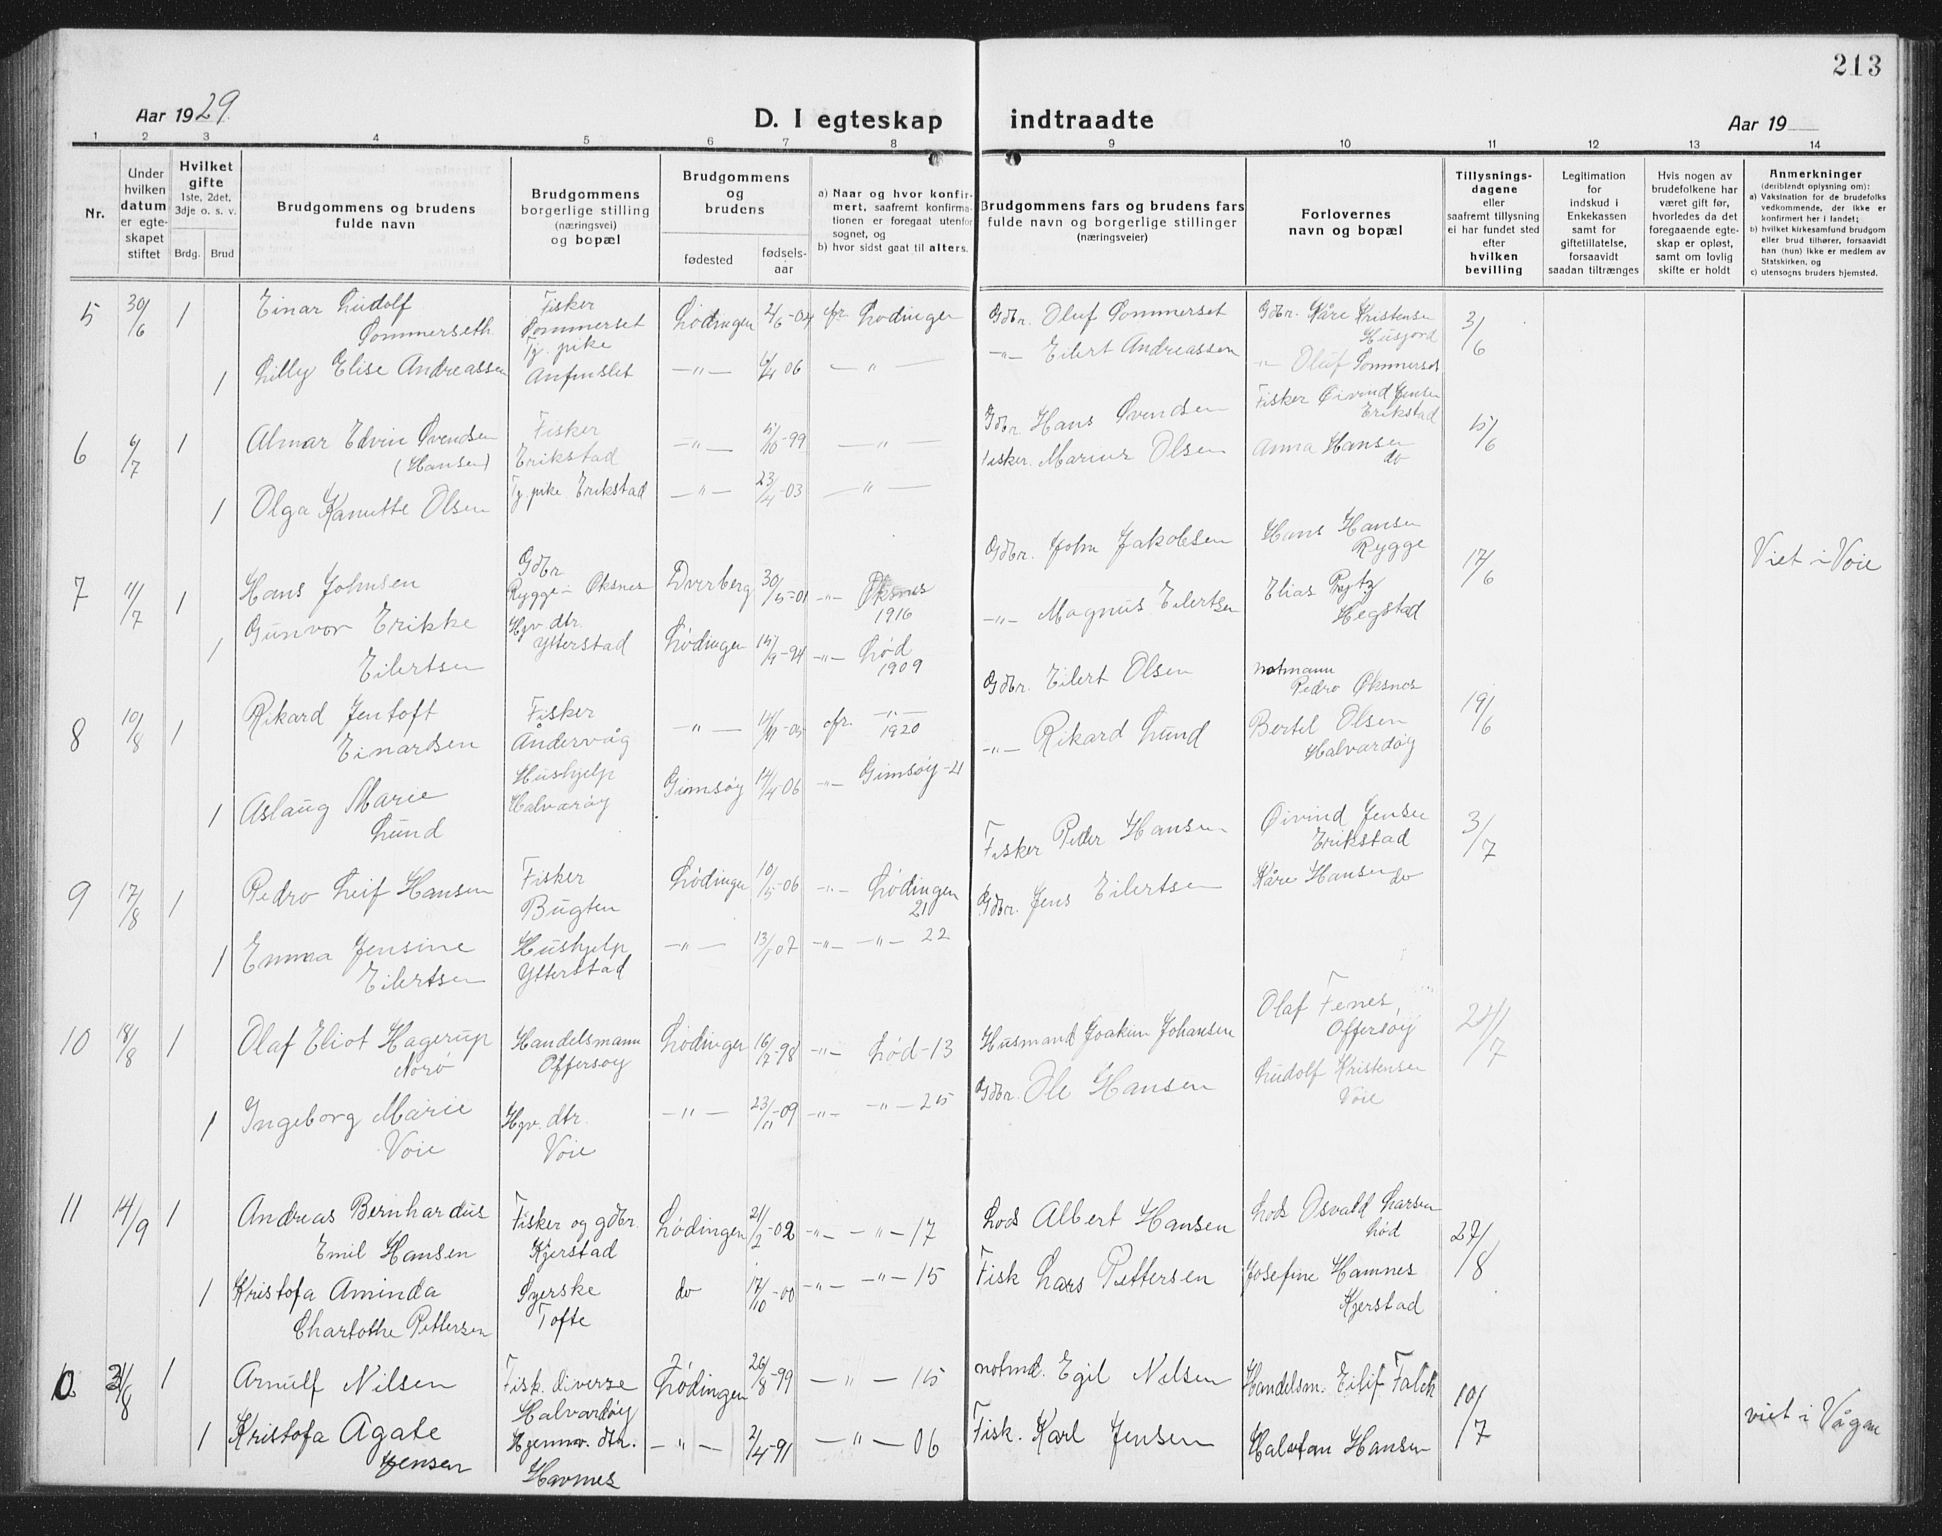 213
Aar 1929.
D. I egteskap indtraadte
Aar 19
1 2 3 4 5 6 7 8 9 10 11 12 13 14
Nr.
Under hvilken datum er egteskapet stiftet
Hvilket gifte
1ste, 2det, 3dje o. s. v.
Brdg. Brud
Brudgommens og brudens fulde navn
Brudgommens borgerlige stilling (næringsvei) og bopæl
Brudgommens og brudens
fødested
fødselsaar
a) Naar og hvor konfirmert, saafremt konfirmationen er foregaat utenfor sognet, og
b) hvor sidst gaat til alters.
Brudgommens fars og brudens fars fulde navn og borgerlige stillinger (næringsveier)
Forlovernes navn og bopæl
Tillysningsdagene eller saafremt tillysning ei har fundet sted efter hvilken bevilling
Legitimation for indskud i Enkekassen samt for giftetillatelse, forsaavidt saadan tiltrænges
Hvis nogen av brudefolkene har været gift før, hvorledes da det foregaaende egteskap er opløst, samt om lovlig skifte er holdt
Anmerkninger
(deriblandt oplysning om):
a) Vaksination for de brudefolks vedkommende, der ikke er konfirmert her i landet;
b) hvilket kirkesamfund brudgom eller brud tilhører, forsaavidt han (hun) ikke er medlem av Statskirken, og
c) utensogns bruders hjemsted.
5 30/6 1 Einar Ludolf Sommerseth
Fisker Sommerset
Lødingen 2/6-04 ofr Lødingen
Gdbr. Oluf Sommerset
Gdbr. Kåre Kristensen Husjord
3/6
1 Lilly Elise Andreassen
Ty. pike Anfinslet
-"- 6/4 06 -"-
-"- Eilert Andreassen
-"- Oluf Sommerset
6 6/7 1 Almar Edvin Svendsen (Hansen)
Fisker Erikstad
-"- 5/10-99 -"-
Gdbr. Hans Svendsen
Fisker Øivind Jensen Erikstad
15/6
1 Olga Kanutte Olsen
Ty. pike Erikstad
-"- 23/4-03 -"-
Fisker. Marius Olsen
Anna Hansen do
7 11/7 1 Hans Johnsen
Gdbr Rygge - Øksnes
Dverberg 30/5-01 -"- Øksnes 1916
Gdbr. John Jakobsen
Hans Hansen Rygge
17/6
Viet i Voie
1 Gunvor Erikke Eilertsen
Hjv. dtr. Ytterstad
Lødingen 15/9-94 -"- Lød 1909
-"- Magnus Eilertsen
Elias Rytz Hegstad
8 10/8 1 Rikard Jentoft Einardsen
Fisker Åndervåg
-"- 14/11-05 ofr. -"- 1920
Gdbr. Eilert Olsen
notmann Pedro Øksnes
19/6
1 Aslaug Marie Lund
Hushjelp Halvarøy
Gimsøy 14/4 06 -"- Gimsøy-21
-"- Rikard Lund
Bertel Olsen Halvardøy
9 17/8 1 Pedro Leif Hansen
Fisker Bugten
Lødingen 10/5-06 -"- Lødingen 21
Fisker Peder Hansen
Øivind Jensen Erikstad
3/7
1 Emma Jensine Eilertsen
Hushjelp Ytterstad
-"- 13/1 07 -"- -"- 22
Gdbr. Jens Eilertsen
Kåre Hansen do
10 18/8 1 Olaf Eliot Hagerup Norø
Handelsmann Offersøy
Lødingen 16/7-98 -"- Lød-13
Husmand Joakim Johansen
Olaf Fenes, Offersøy
21/7
1 Ingeborg Marie Voie
Hjv. dtr. Voie
-"- 23/11-09 -"- -"- 25
Gdbr. Ole Hansen
Ludolf Kristensen Voie
11 14/9 1 Andreas Bernhardus Emil Hansen
Fisker og gdbr. Kjerstad
Lødingen 21/2-02 -"- -"- 17
Lods Albert Hansen
Lods Osvald Larsen Lød
27/8
1 Kristofa Aminda Charlothe Pettersen
Syerske Tofte
do 17/10-00 -"- -"- 15
Fisk Lars Pettersen
Josefine Hamnes Kjerstad
31/8 1 Arnulf Nilsen
Fisk. diverse Halvardøy
Lødingen 26/8-99 -"- 15
notmd. Egil Nilsen
Handelsm. Eilif Falck
10/7
viet i Vågan
1 Kristofa Agate Jensen
Hjemmv. dtr. Havnes
-"- 2/4-91 -"- 06
Fisk. Karl Jensen
Halvfan Hansen